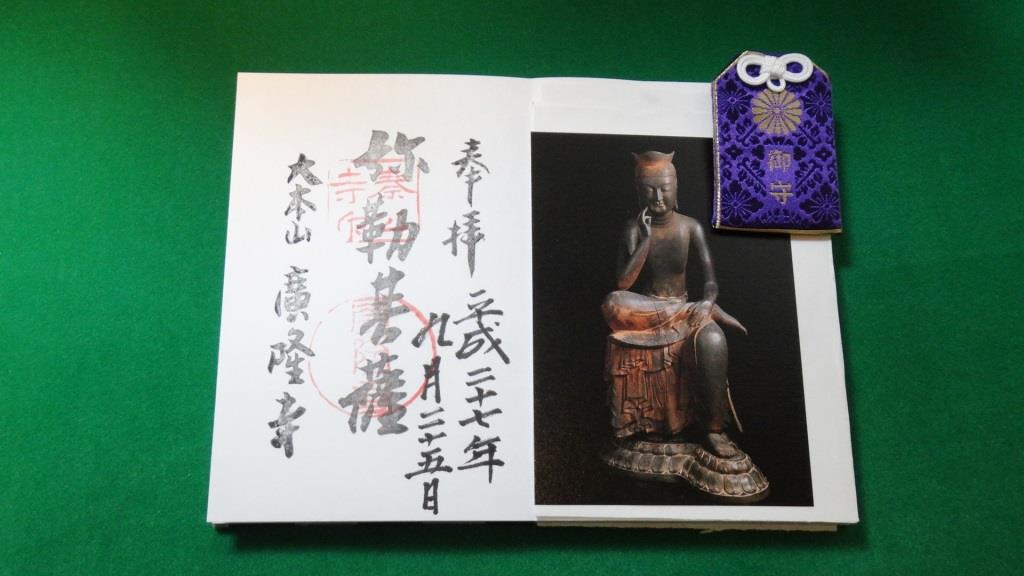 奉拝
平成二十七年
九月二十五日
弥勒菩薩
大本山 廣隆寺
御守